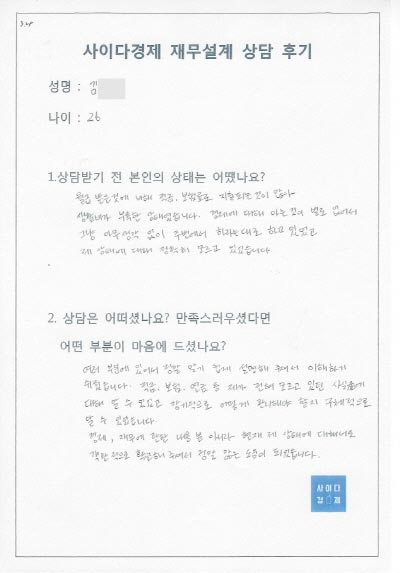 사이다경제 재무설계 상담 후기
성명 : 김
나이 : 26
1.상담받기 전 본인의 상태는 어땠나요?
월급 받은것에 비해 적금, 보험료로 지출되는 것이 많아
생활비가 부족한 상태였습니다. 경제에 대해 아는 것이 별로 없어서
그냥 아무생각 없이 주변에서 하라는대로 하고 있었고
제 상태에 대해 정확히 모르고 있었습니다
2. 상담은 어떠셨나요? 만족스러우셨다면
어떤 부분이 마음에 드셨나요?
여러 부분에 있어서 정말 알기 쉽게 설명해 주셔서 이해하기
쉬웠습니다. 적금, 보험, 연금 등 제가 전혀 모르고 있던 사실들에
대해 알 수 있었고 장기적으로 어떻게 관리해야 할지 구체적으로
알 수 있었습니다.
경제, 재무에 관한 나용 뿐 아니라 현재 제 상태에 대해서도
객관적으로 말씀해 주셔서 정말 많은 도움이 되었습니다.
사이다
경제